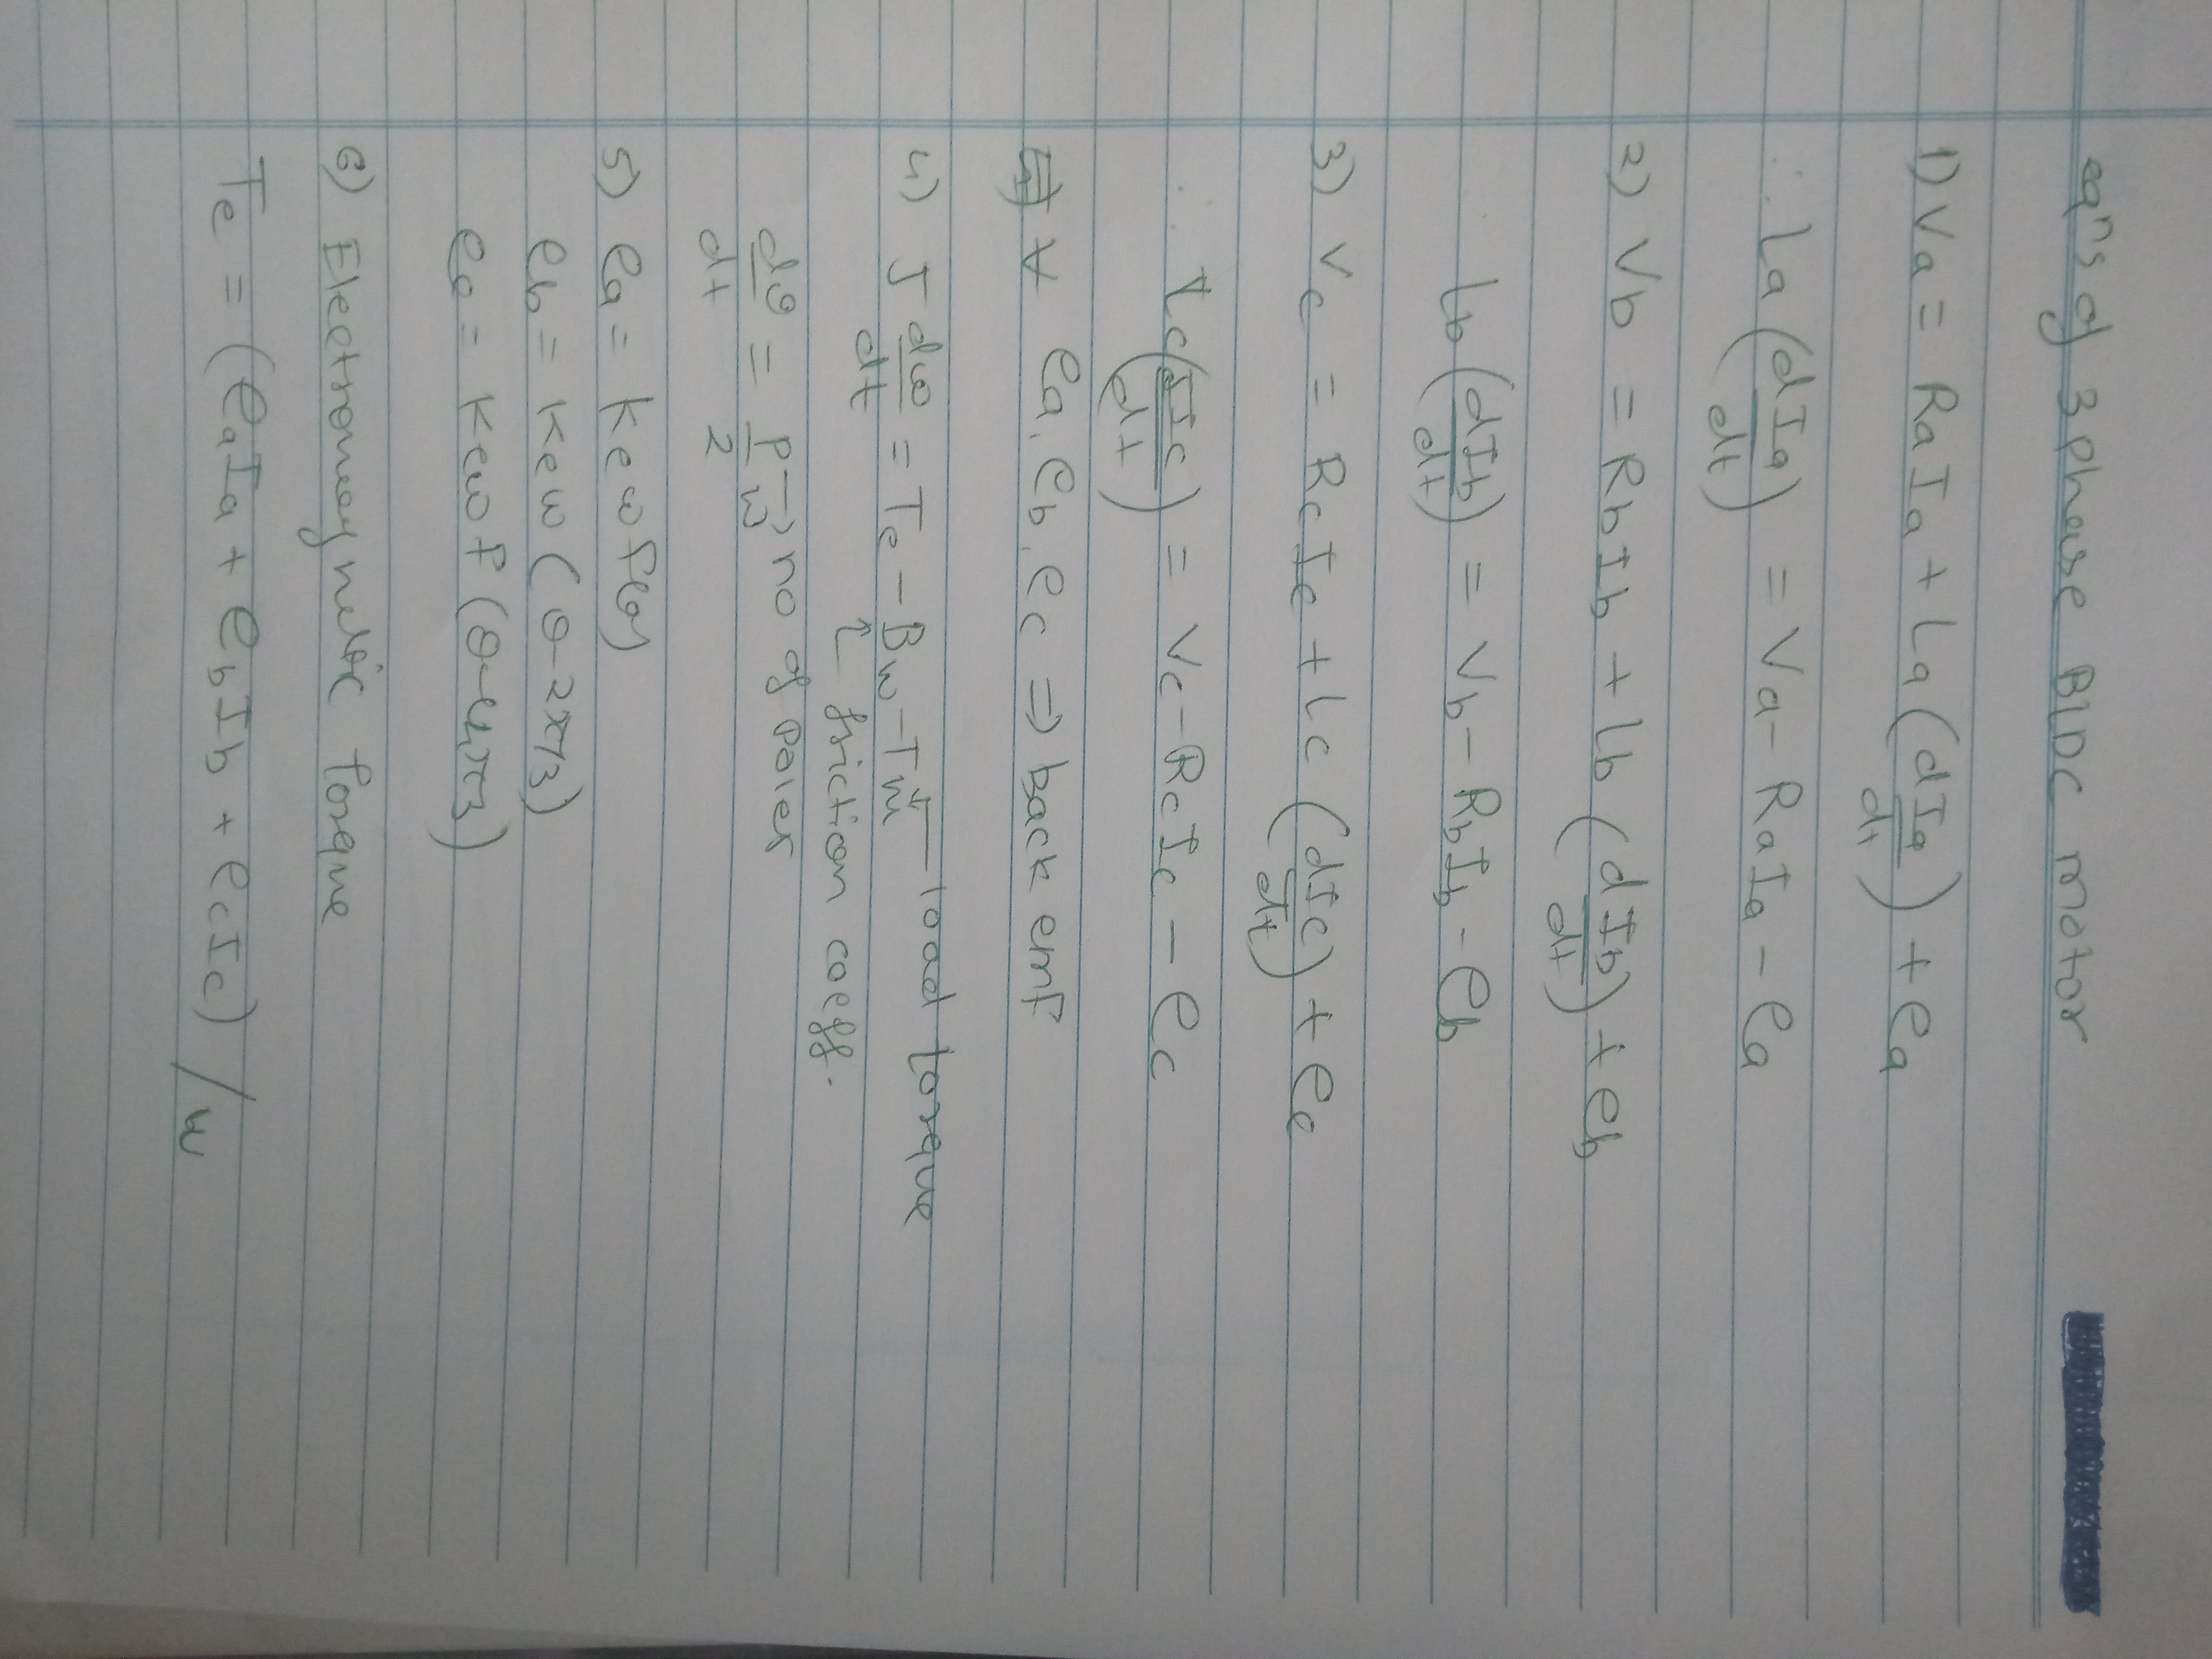 eqns of 3 phase BLDC motor
1) Va = RaIa + La (dIa/dt) + ea
∴ La (dIa/dt) = Va - RaIa - ea
2) Vb = RbIb + Lb (dIb/dt) + eb
Lb (dIb/dt) = Vb - RbIb - eb
3) Vc = RcIc + Lc (dIc/dt) + ec
∴ Lc (dIc/dt) = Vc - RcIc - ec
ea, eb, ec ⇒ back emf
4) J dω/dt = Te - Bω - Tm → load torque
↑ friction coeff.
dθ/dt = P/2 ω → no of poles
5) ea = keωf(θ)
eb = keω(θ-2π/3)
ec = keωf(θ-4π/3)
6) Electromagnetic Torque
Te = (eaIa + ebIb + ecIc) / ω